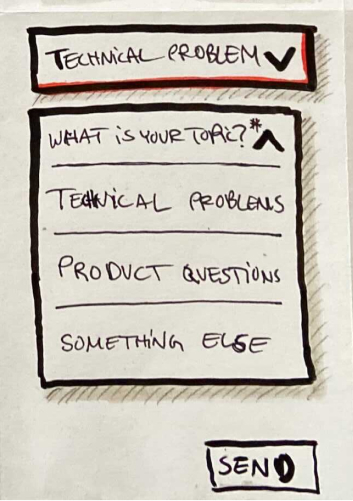 TECHNICAL PROBLEM
WHAT IS YOUR TOPIC?*
TECHNICAL PROBLEMS
PRODUCT QUESTIONS
SOMETHING ELSE
SEND